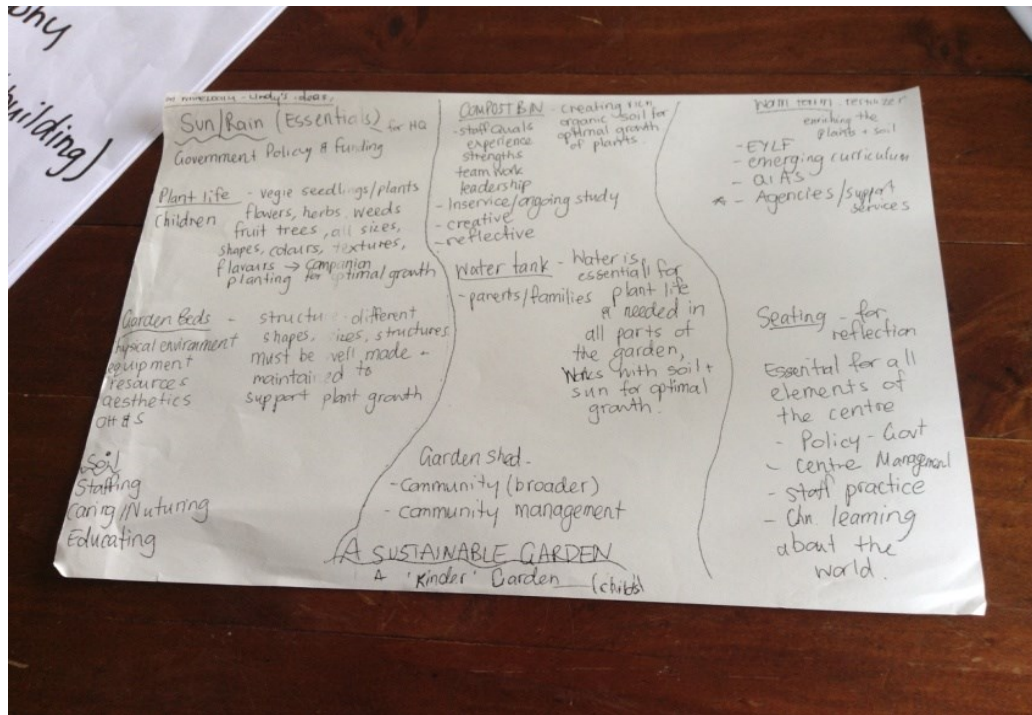 ohy
uilding)
Wendy's ideas
Sun/Rain (Essentials) for HQ
Government Policy & Funding
Plant life - vegie seedlings/plants
Children flowers, herbs, weeds
fruit trees, all sizes,
shapes, colours, textures,
flavours → companion
planting for optimal growth
Garden Beds - structure different
physical environment shapes, sizes, structures
equipment must be well made +
resources maintained to
aesthetics support plant growth
OH & S
Soil
Staffing
Caring/Nuturing
Educating
COMPOST BIN - creating rich
organic soil for
optimal growth
of plants.
- staff quals
experience
strengths
team work
leadership
- Inservice/ongoing study
- creative
- reflective
Water tank - Water is
essentiall for
- parents/families plant life
& needed in
all parts of
the garden,
Works with soil +
sun for optimal
growth.
Garden shed -
- Community (broader)
- community management
A SUSTAINABLE GARDEN
A 'Kinder' Garden (child's)
fertilizer
enriching the
plants + soil
- EYLF
- emerging curriculum
- QIAS
* - Agencies/support
services
Seating - for
reflection
Essential for all
elements of
the centre
- Policy - Govt
- Centre Management
- staff practice
- Chn. learning
about the
world.